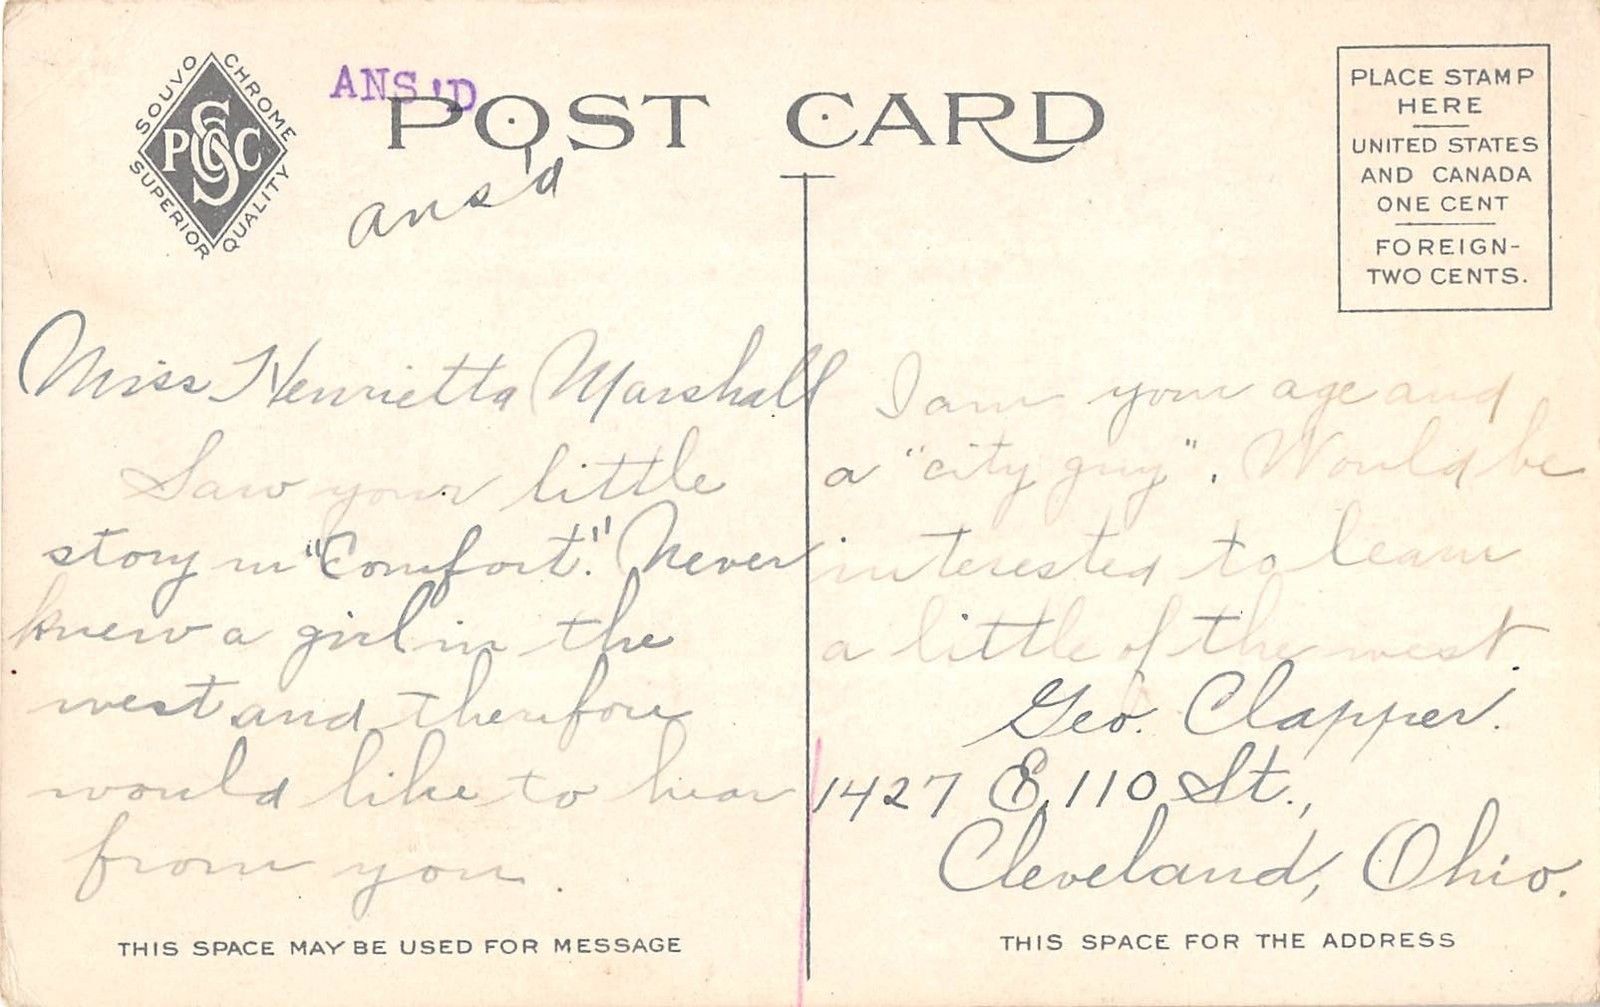 SOUVO CHROME
PSCC
SUPERIOR QUALITY
ANS.'D
POST CARD
ans'd
PLACE STAMP
HERE
UNITED STATES
AND CANADA
ONE CENT
FOREIGN-
TWO CENTS.
Miss Henrietta Marshall
Saw your little
story in "Comfort." Never
knew a girl in the
west and therefore
would like to hear
from you.
I am your age and
a "city guy". Would be
interested to learn
a little of the west.
Geo. Clapper.
1427 E. 110 St.,
Cleveland, Ohio.
THIS SPACE MAY BE USED FOR MESSAGE
THIS SPACE FOR THE ADDRESS